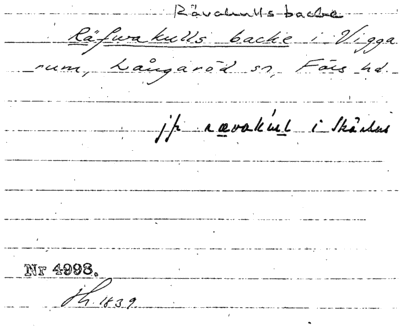 Rävakullsbacke
Räfwakulls backe i Vigga
rum, Långaröd sn, Färs hd.
jfr rævakúl i Skårhus
Nr 4998.
Sh. 1839